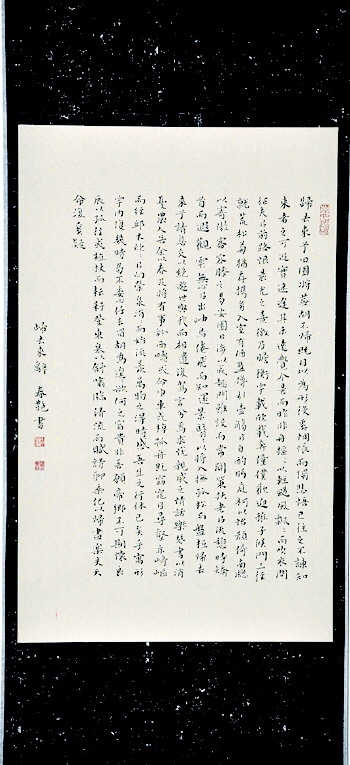 歸去來兮田園將蕪胡不歸既自以心為形役奚惆悵而獨悲悟已往之不諫知
來者之可追實迷途其未遠覺今是而昨非舟搖搖以輕颺風飄飄而吹衣問
征夫以前路恨晨光之熹微乃瞻衡宇載欣載奔僮僕歡迎稚子候門三徑
就荒松菊猶存攜幼入室有酒盈樽引壺觴以自酌眄庭柯以怡顏倚南窗
以寄傲審容膝之易安園日涉以成趣門雖設而常關策扶老以流憩時矯
首而遐觀雲無心以出岫鳥倦飛而知還景翳翳以將入撫孤松而盤桓歸去
來兮請息交以絕遊世與我而相遺復駕言兮焉求悅親戚之情話樂琴書以消
憂農人告余以春及將有事於西疇或命巾車或棹孤舟既窈窕以尋壑亦崎嶇
而經邱木欣欣以向榮泉涓涓而始流羨萬物之得時感吾生之行休已矣乎寓形
宇內復幾時曷不委心任去留胡為遑遑欲何之富貴非吾願帝鄉不可期懷良
辰以孤往或植杖而耘耔登東皋以舒嘯臨清流而賦詩聊乘化以歸盡樂夫天
命復奚疑
歸去來辭 春艷書